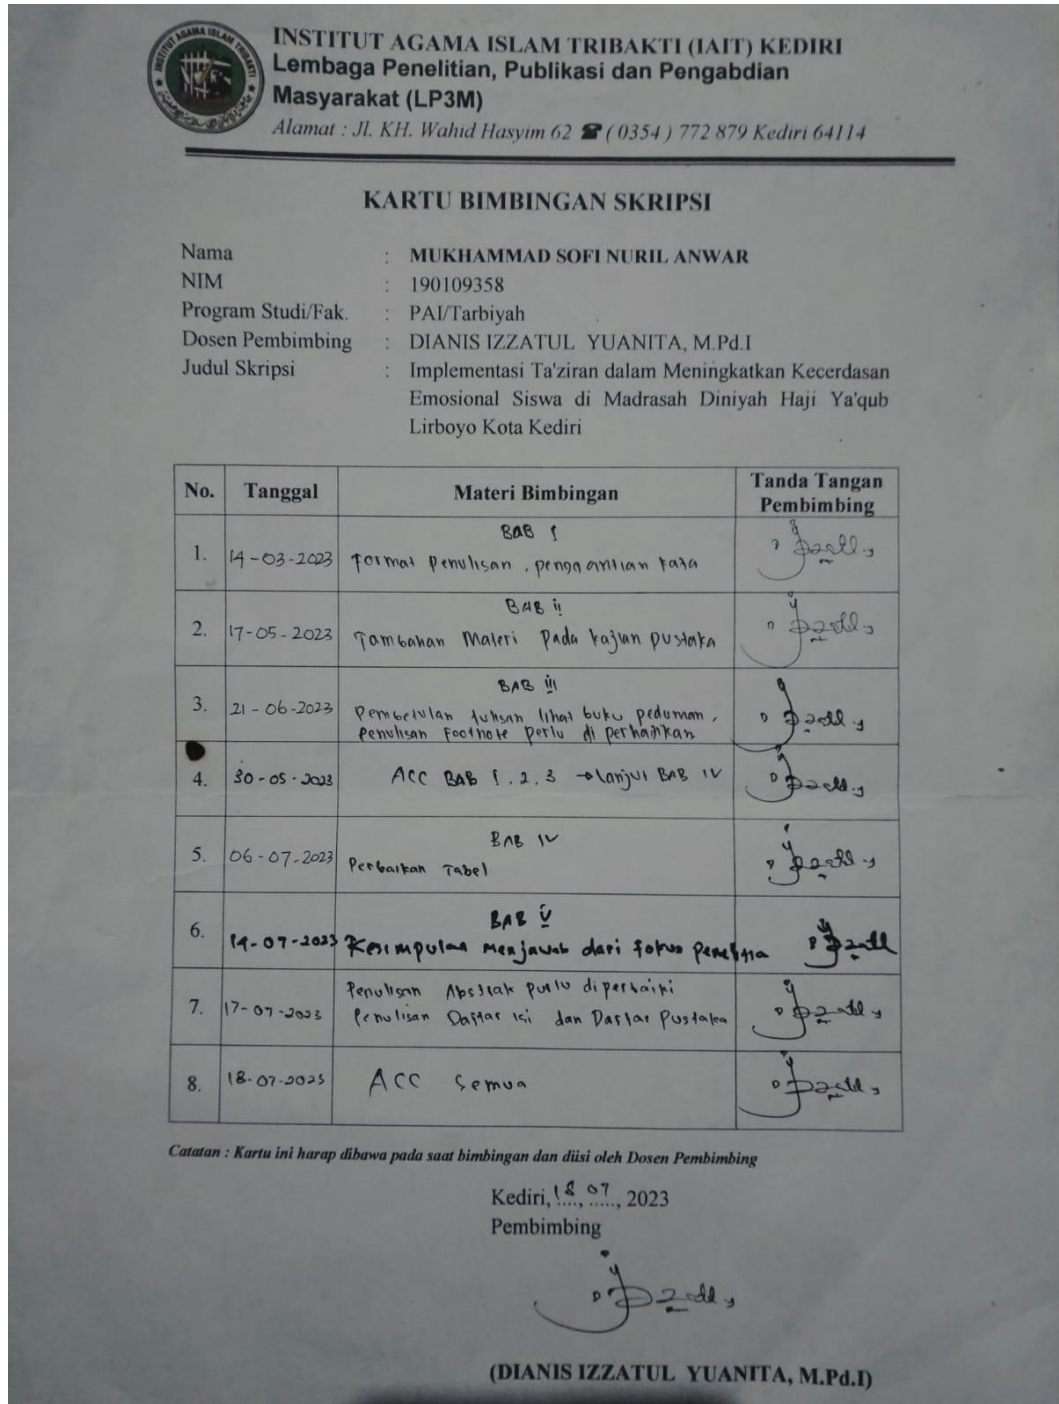 INSTITUT AGAMA ISLAM TRIBAKTI
INSTITUT AGAMA ISLAM TRIBAKTI (IAIT) KEDIRI
Lembaga Penelitian, Publikasi dan Pengabdian
Masyarakat (LP3M)
Alamat : Jl. KH. Wahid Hasyim 62 ☎ ( 0354 ) 772 879 Kediri 64114
KARTU BIMBINGAN SKRIPSI
Nama : MUKHAMMAD SOFI NURIL ANWAR
NIM : 190109358
Program Studi/Fak. : PAI/Tarbiyah
Dosen Pembimbing : DIANIS IZZATUL YUANITA, M.Pd.I
Judul Skripsi : Implementasi Ta'ziran dalam Meningkatkan Kecerdasan
Emosional Siswa di Madrasah Diniyah Haji Ya'qub
Lirboyo Kota Kediri
No. Tanggal Materi Bimbingan Tanda Tangan
Pembimbing
BAB I
1. 14-03-2023 Format Penulisan, penggantian kata
BAB II
2. 17-05-2023 Tambahan Materi Pada kajian pustaka
BAB III
3. 21-06-2023 Pembetulan tulisan lihat buku peduman,
Penulisan Footnote perlu di perhatikan
4. 30-05-2023 ACC BAB 1.2.3 → lanjut BAB IV
BAB IV
5. 06-07-2023 Perbaikan Tabel
BAB V
6. 14-07-2023 Kesimpulan menjawab dari fokus penelitia
Penulisan Abstrak perlu diperbaiki
7. 17-07-2023 Penulisan Daftar isi dan Daftar Pustaka
8. 18-07-2023 ACC Semua
Catatan : Kartu ini harap dibawa pada saat bimbingan dan diisi oleh Dosen Pembimbing
Kediri, 18, 07, 2023
Pembimbing
(DIANIS IZZATUL YUANITA, M.Pd.I)